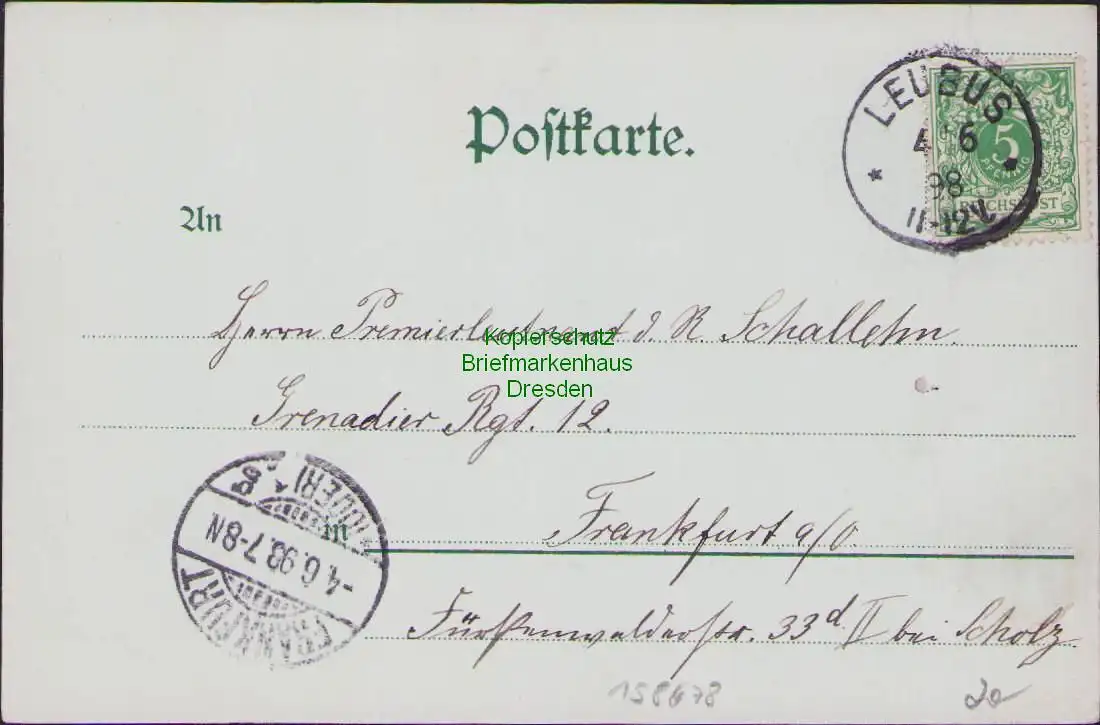 Postkarte.
LEUBUS
4 6
98
11-12V.
5
PFENNIG
REICHSPOST
An
Herrn Premierleutnant d. R. Schallehn.
Kopierschutz
Briefmarkenhaus
Dresden
Grenadier Rgt. 12.
in Frankfurt a/O.
Fürstenwalderstr. 33d II bei Scholz.
FRANKFURT
-4.6.98.7-8N
(ODER)